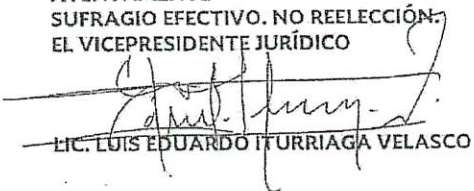 SUFRAGIO EFECTIVO. NO REELECCIÓN.
EL VICEPRESIDENTE JURÍDICO
LIC. LUIS EDUARDO ITURRIAGA VELASCO